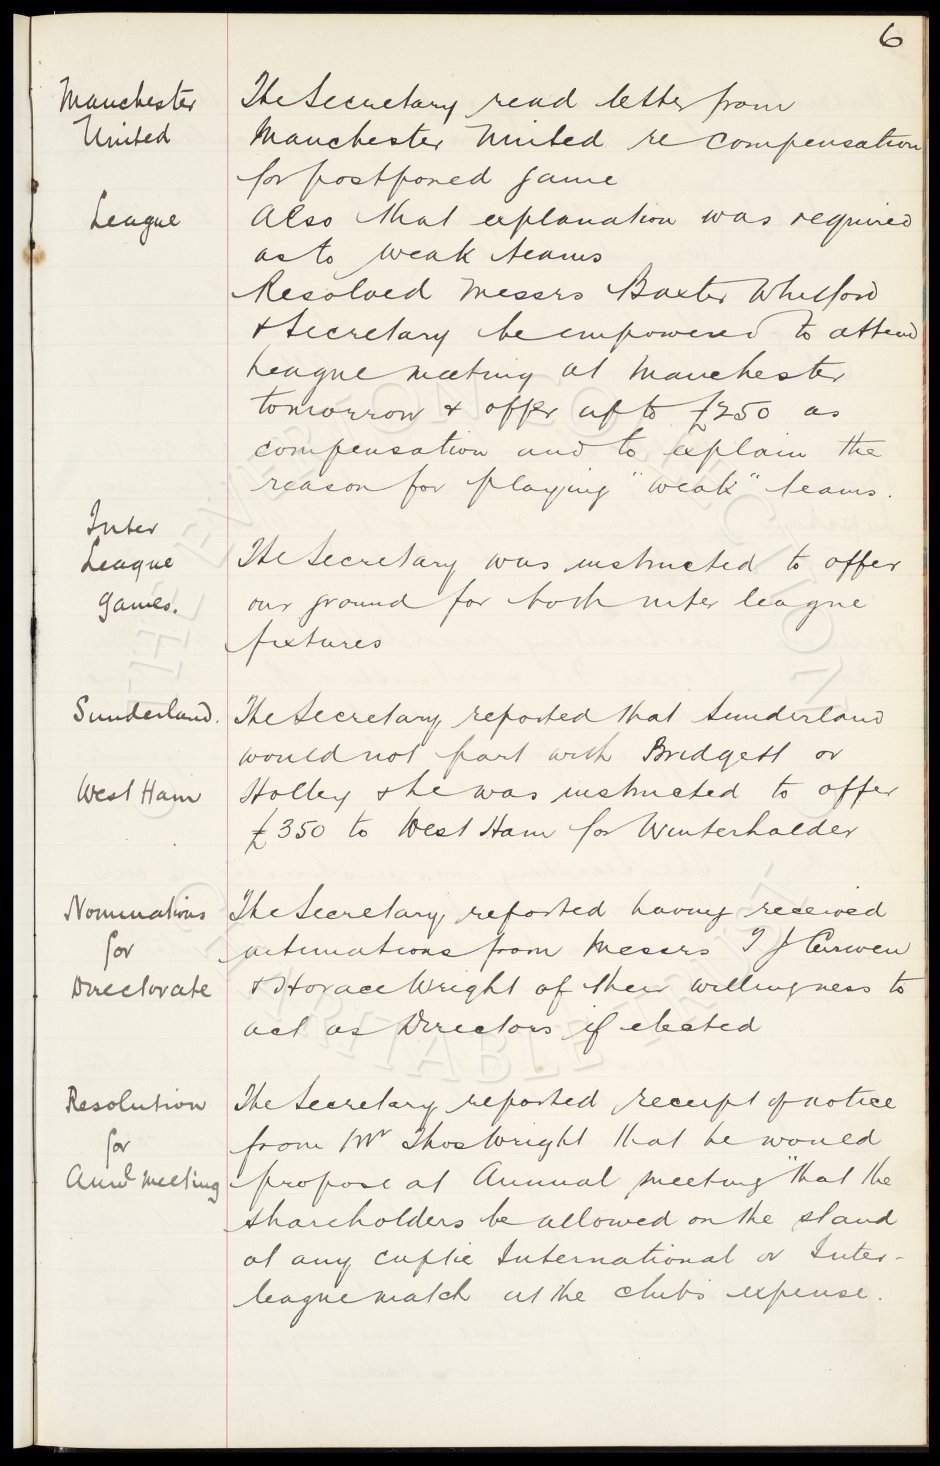 6
Manchester
United
The Secretary read letter from
Manchester United re compensation
for postponed game
League
Also that explanation was required
as to weak teams
Resolved Messrs Baxter Whitford
& Secretary be empowered to attend
League meeting at Manchester
tomorrow & offer up to £250 as
compensation and to explain the
reason for playing "weak" teams.
Inter
League
games.
The Secretary was instructed to offer
our ground for both inter league
fixtures
Sunderland.
The Secretary reported that Sunderland
would not part with Bridgett or
West Ham
Holley & he was instructed to offer
£350 to West Ham for Winterhalder
Nominations
for
Directorate
The Secretary reported having received
intimations from Messrs T J Curwen
& Horace Wright of their willingness to
act as Directors if elected
Resolution
for
Annl meeting
The Secretary reported receipt of notice
from Mr Thos Wright that he would
propose at Annual meeting "that the
shareholders be allowed on the stand
at any cuptie International or Inter-
league match at the club's expense.
THE EVERTON COLLECTION
CHARITABLE TRUST